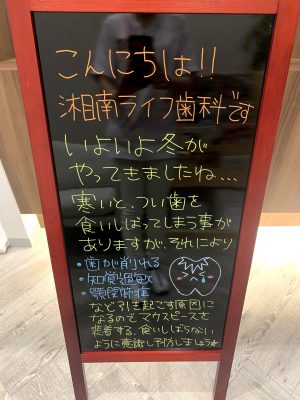 こんにちは!!
湘南ライフ歯科です
いよいよ冬が
やってきましたね...
寒いと、つい歯を
食いしばってしまう事が
ありますが、それにより
・歯が削れる
・知覚過敏
・顎関節症
など引き起こす原因に
なるので、マウスピースを
装着する、食いしばらない
ように意識し予防しましょう☆